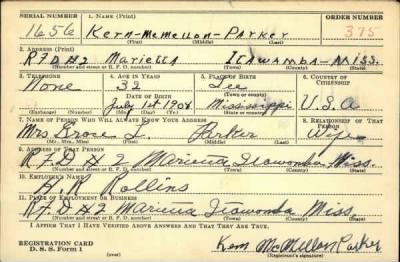 SERIAL NUMBER 1. NAME (Print) ORDER NUMBER
1656 Kern-McMellon-Parker 375
(First) (Middle) (Last)
2. ADDRESS (Print)
RFD #2 Marietta Itawamba-Miss.
(Number and street or R. F. D. number) (Town) (County) (State)
3. TELEPHONE 4. AGE IN YEARS 5. PLACE OF BIRTH 6. COUNTRY OF CITIZENSHIP
None 32 Lee
DATE OF BIRTH (Town or county)
July 1st 1908 Mississippi U.S.A
(Exchange) (No.) (Mo.) (Day) (Yr.) (State or country)
7. NAME OF PERSON WHO WILL ALWAYS KNOW YOUR ADDRESS 8. RELATIONSHIP OF THAT PERSON
Mrs L. Parker Wife
(Mr., Mrs., Miss) (First) (Middle) (Last)
9. ADDRESS OF THAT PERSON
RFD #2 Marietta Itawamba Miss.
(Number and street or R. F. D. number) (Town) (County) (State)
10. EMPLOYER'S NAME
Rollins
11. PLACE OF EMPLOYMENT OR BUSINESS
RFD #2 Marietta Itawamba Miss.
(Number and street or R. F. D. number) (Town) (County) (State)
I AFFIRM THAT I HAVE VERIFIED ABOVE ANSWERS AND THAT THEY ARE TRUE.
REGISTRATION CARD
D. S. S. Form 1 Kern McMellon Parker
(Registrant's signature)